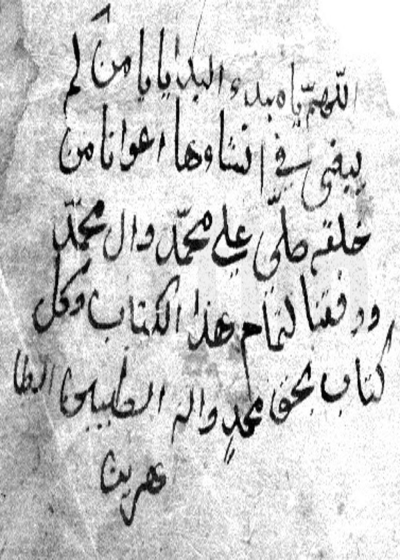 اللهمّ يا مبدء البدايا يا من لم
يبغى في انشاوها اعوانا من
خلقه صلّى على محمّد وال محمّد
ووفقنا لتمام هذا الكتاب وكل
كتاب بحق محمدٍ واله الطيبين الطا
هرين